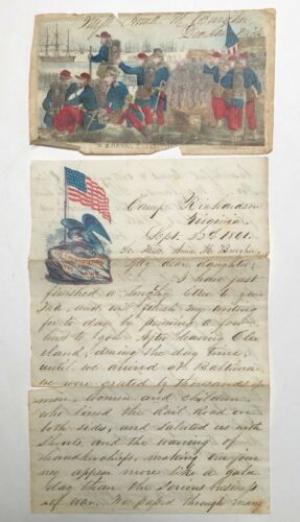 Miss
Camp Richardson
Virginia
Sept. 1861.
To Miss
My dear daughter,
I have just
finished a lengthy letter to your
Ma, and will finish my writing
for to day by penning a few
lines to you. After leaving Cleve
land, during the day time,
until we arrived at Baltimore
we were greeted by thousands of
men, women and children,
who lined the Rail Road on
both sides, and saluted us with
shouts and the waving of
handkerchiefs, making our jour
ney appear more like a gala
day than the serious business
of war. We passed through many